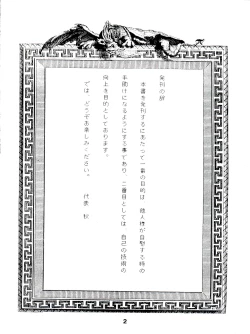 発刊の辞
本書を発刊するにあたって一番の目的は 故人様が自慰する時の
手助けになるようにする事であり、二番目としては 自己の技術の
向上を目的としてあります。
では、どうぞお楽しみください。 代表 秋
2